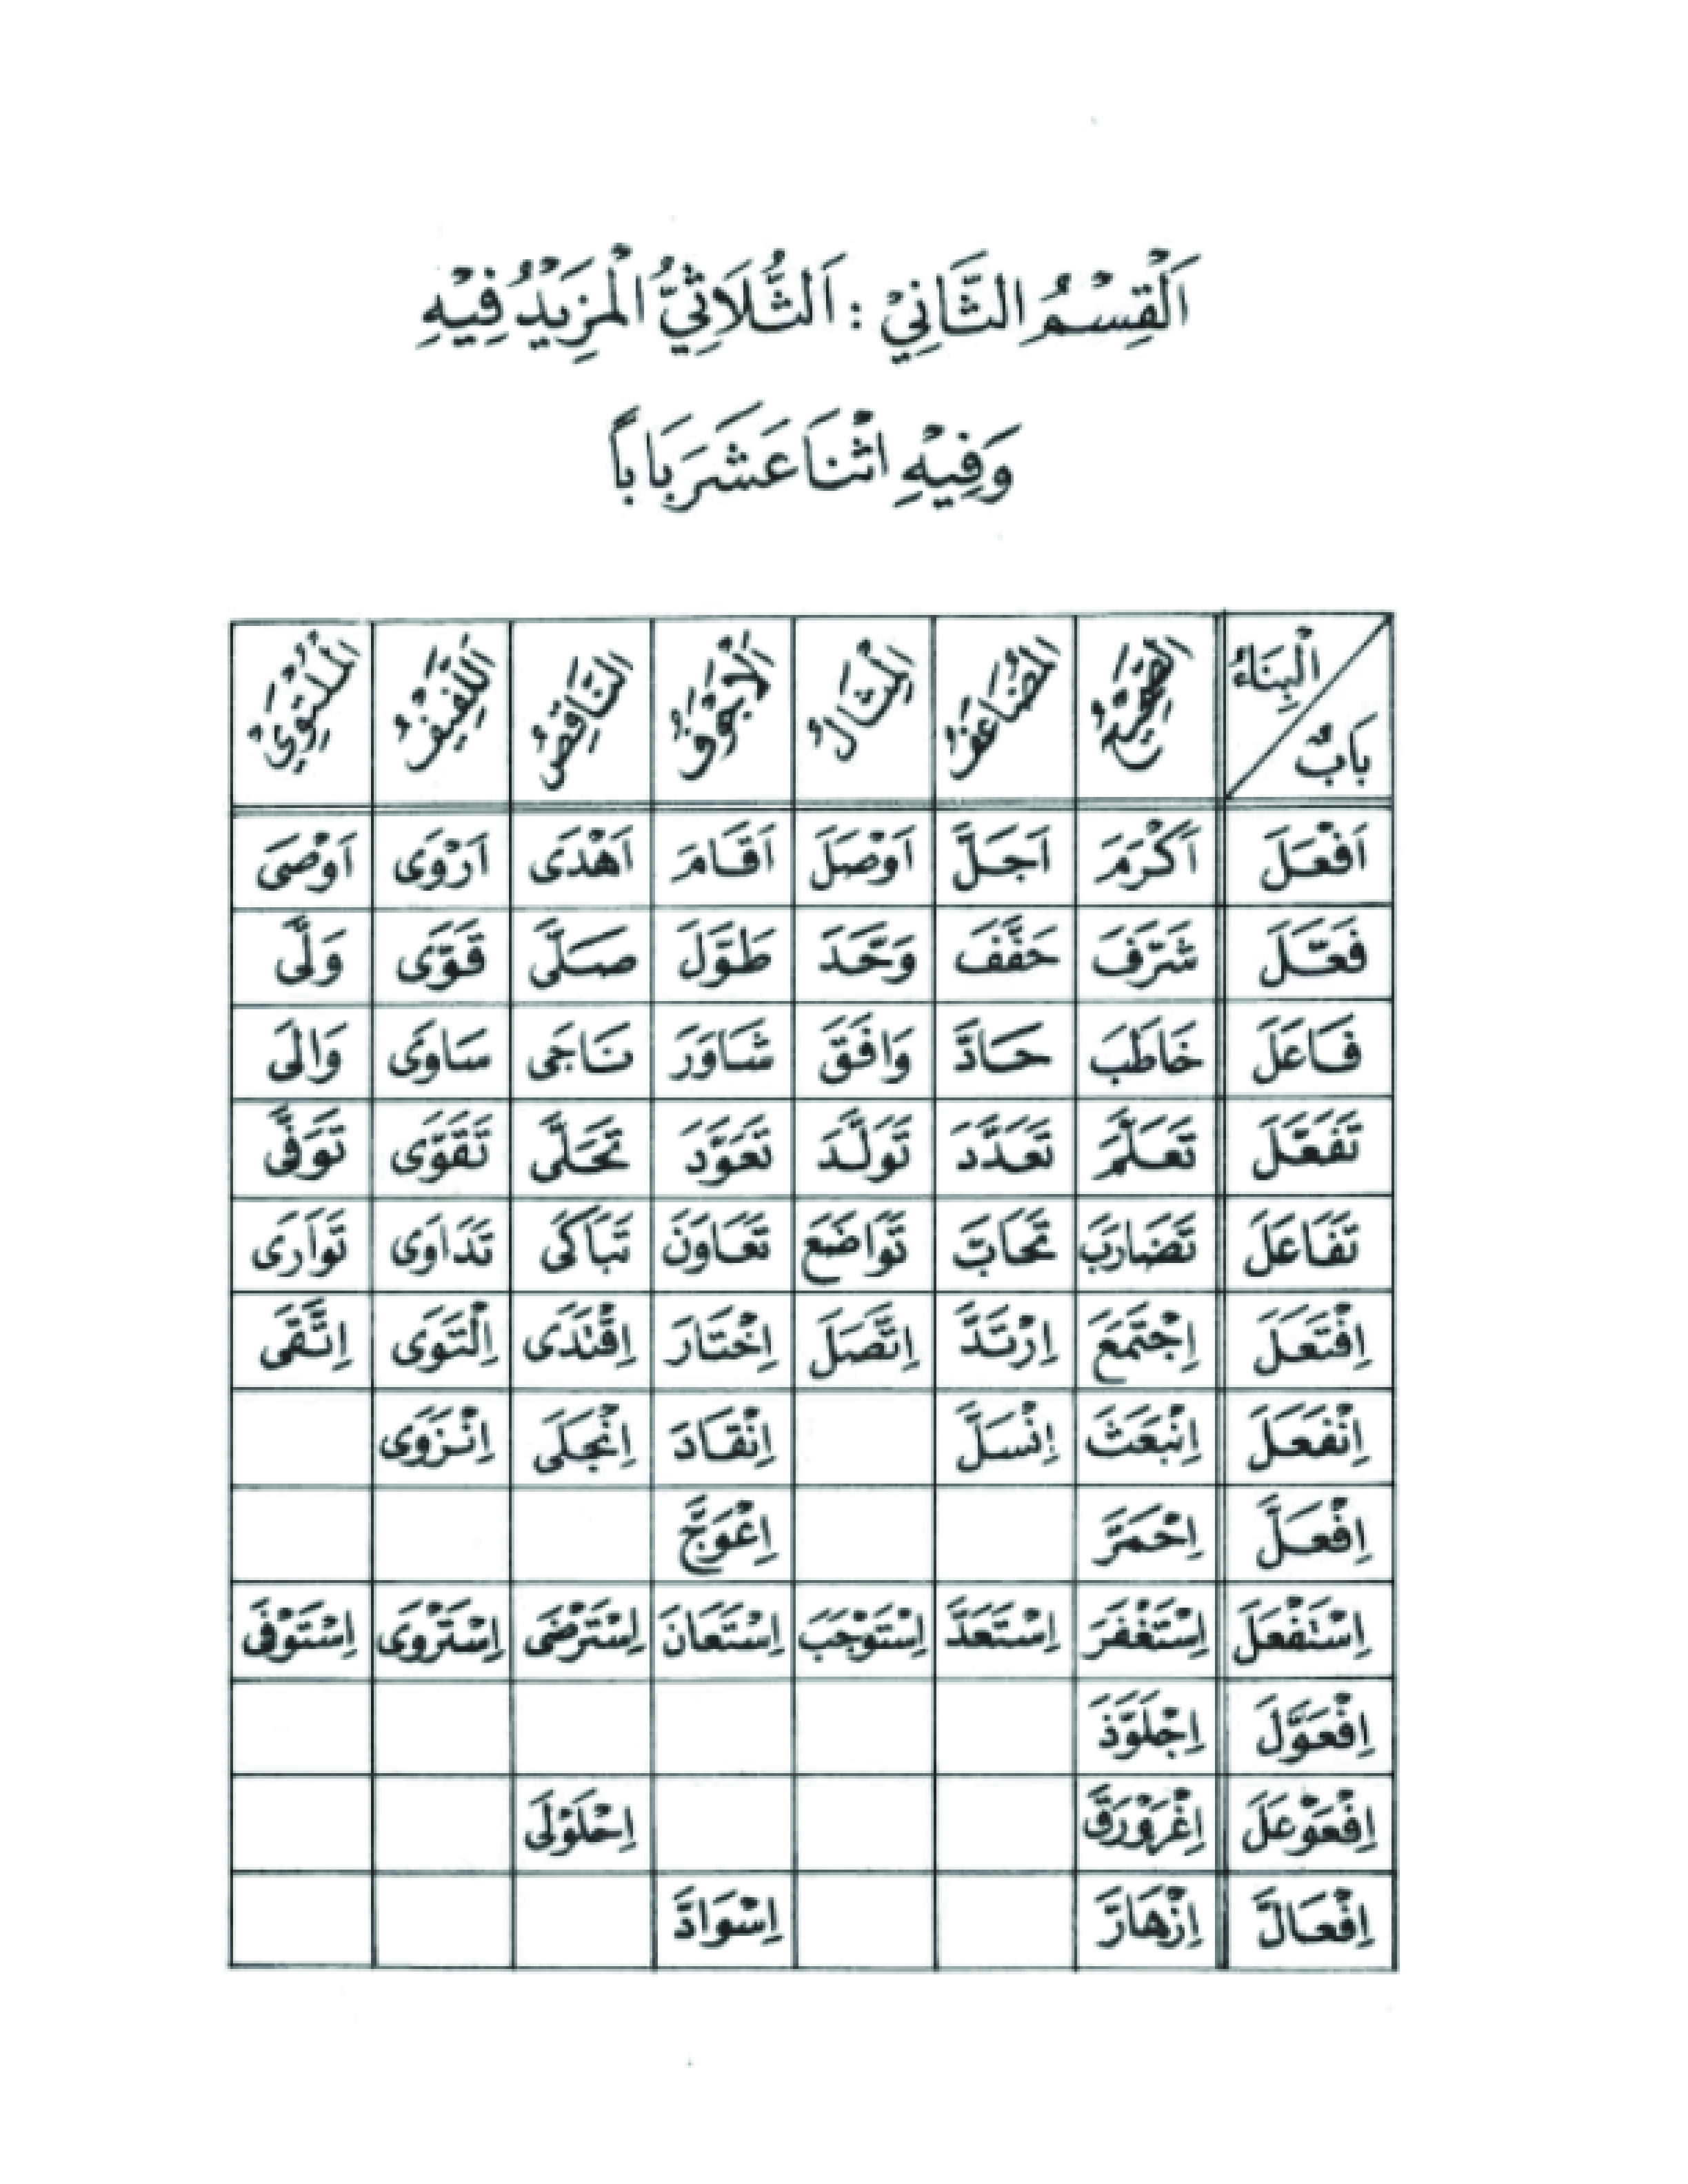 اَلْقِسْمُ الثَّانِيْ : اَلثُّلَاثِيُّ الْمَزِيْدُ فِيْهِ
وَفِيْهِ اثْنَا عَشَرَ بَاباً
اَلْبِنَاءُ بَابٌ اَلصَّحِيْحُ اَلْمُضَاعَفُ اَلْمِثَالُ اَلْاَجْوَفُ اَلنَّاقِصُ اَللَّفِيْفُ اَلْمُلْتَوِيْ
اَفْعَلَ اَكْرَمَ اَجَلَّ اَوْصَلَ اَقَامَ اَهْدَى اَرْوَى اَوْصَى
فَعَّلَ شَرَّفَ خَفَّفَ وَحَّدَ طَوَّلَ صَلَّى قَوَّى وَلَّى
فَاعَلَ خَاطَبَ حَادَّ وَافَقَ شَاوَرَ نَاجَى سَاوَى وَالَى
تَفَعَّلَ تَعَلَّمَ تَعَدَّدَ تَوَلَّدَ تَعَوَّدَ تَحَلَّى تَقَوَّى تَوَفَّى
تَفَاعَلَ تَضَارَبَ تَحَابَّ تَوَاضَعَ تَعَاوَنَ تَبَاكَى تَدَاوَى تَوَارَى
اِفْتَعَلَ اِجْتَمَعَ اِرْتَدَّ اِتَّصَلَ اِخْتَارَ اِقْتَدَى اِلْتَوَى اِتَّقَى
اِنْفَعَلَ اِنْبَعَثَ اِنْسَلَّ اِنْقَادَ اِنْجَلَى اِنْزَوَى
اِفْعَلَّ اِحْمَرَّ اِعْوَجَّ
اِسْتَفْعَلَ اِسْتَغْفَرَ اِسْتَعَدَّ اِسْتَوْجَبَ اِسْتَعَانَ اِسْتَرْضَى اِسْتَرْوَى اِسْتَوْفَى
اِفْعَوَّلَ اِجْلَوَّذَ
اِفْعَوْعَلَ اِغْرَوْرَقَ اِحْلَوْلَى
اِفْعَالَّ اِزْهَارَّ اِسْوَادَّ